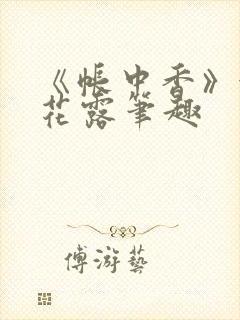 《帐中香》
花露笔趣
傅游艺